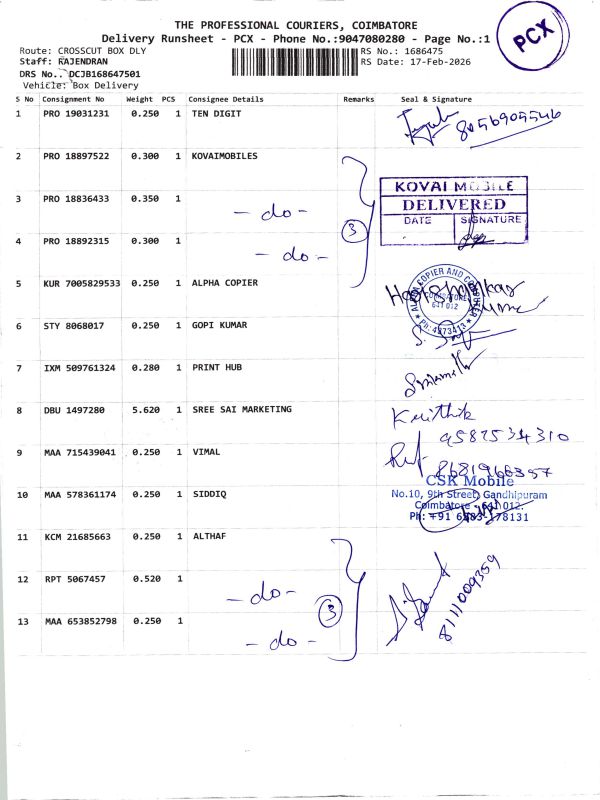 THE PROFESSIONAL COURIERS, COIMBATORE
PCX
Delivery Runsheet - PCX - Phone No.:9047080280 - Page No.:1
Route: CROSSCUT BOX DLY RS No.: 1686475
Staff: RAJENDRAN RS Date: 17-Feb-2026
DRS No.. DCJB168647501
Vehicle: Box Delivery
S No Consignment No Weight PCS Consignee Details Remarks Seal & Signature
1 PRO 19031231 0.250 1 TEN DIGIT 8056905546
2 PRO 18897522 0.300 1 KOVAIMOBILES
KOVAI MOBILE
DELIVERED
3 PRO 18836433 0.350 1 - do -
DATE SIGNATURE
3
4 PRO 18892315 0.300 1 - do -
5 KUR 7005829533 0.250 1 ALPHA COPIER
COIMBATORE
641 012
Ph: 4373413
6 STY 8068017 0.250 1 GOPI KUMAR
7 IXM 509761324 0.280 1 PRINT HUB
8 DBU 1497280 5.620 1 SREE SAI MARKETING
9587534310
9 MAA 715439041 0.250 1 VIMAL
CSK Mobile
10 MAA 578361174 0.250 1 SIDDIQ No.10, 9th Street, Gandhipuram
Coimbatore - 641 012.
11 KCM 21685663 0.250 1 ALTHAF
12 RPT 5067457 0.520 1 - do -
3
8111009359
13 MAA 653852798 0.250 1 - do -